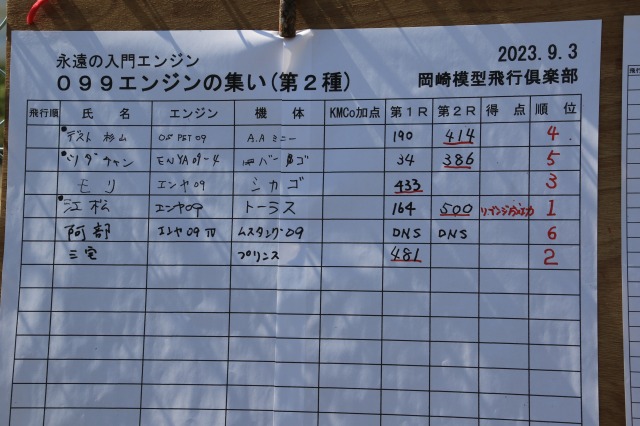 永遠の入門エンジン
2023.9.3
０９９エンジンの集い(第２種)
岡崎模型飛行倶楽部
飛行順 氏 名 エンジン 機 体 KMCo加点 第１Ｒ 第２Ｒ 得 点 順 位
デスト 杉山 OS PET 09 A.A ミニー 190 414 4
ツダチャン ENYA 09-4 34 386 5
モリ エンヤ09 シカゴ 433 3
江松 エンヤ09 トーラス 164 500 1
阿部 エンヤ09 ムスタング09 DNS DNS 6
三宅 プリンス 481 2